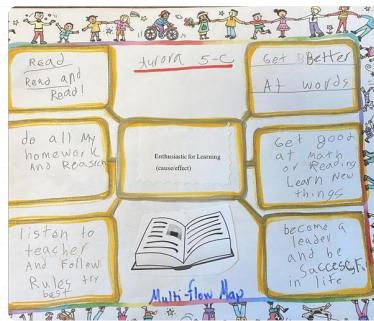 Aurora 5-C
Read
Read and
Read!
Get BBetter
At words
do all My
homework
And Reaserch
Enthusiastic for Learning
(cause/effect)
Get good
at Math
or Reading
Learn New
things
listen to
teacher
And Follow
Rules try
best
become a
leader
and be
in life
Multi-Flow Map